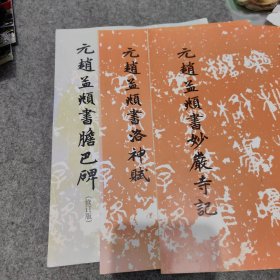 元趙孟頫書膽巴碑
(修訂版)
元趙孟頫書洛神賦
元趙孟頫書妙嚴寺記